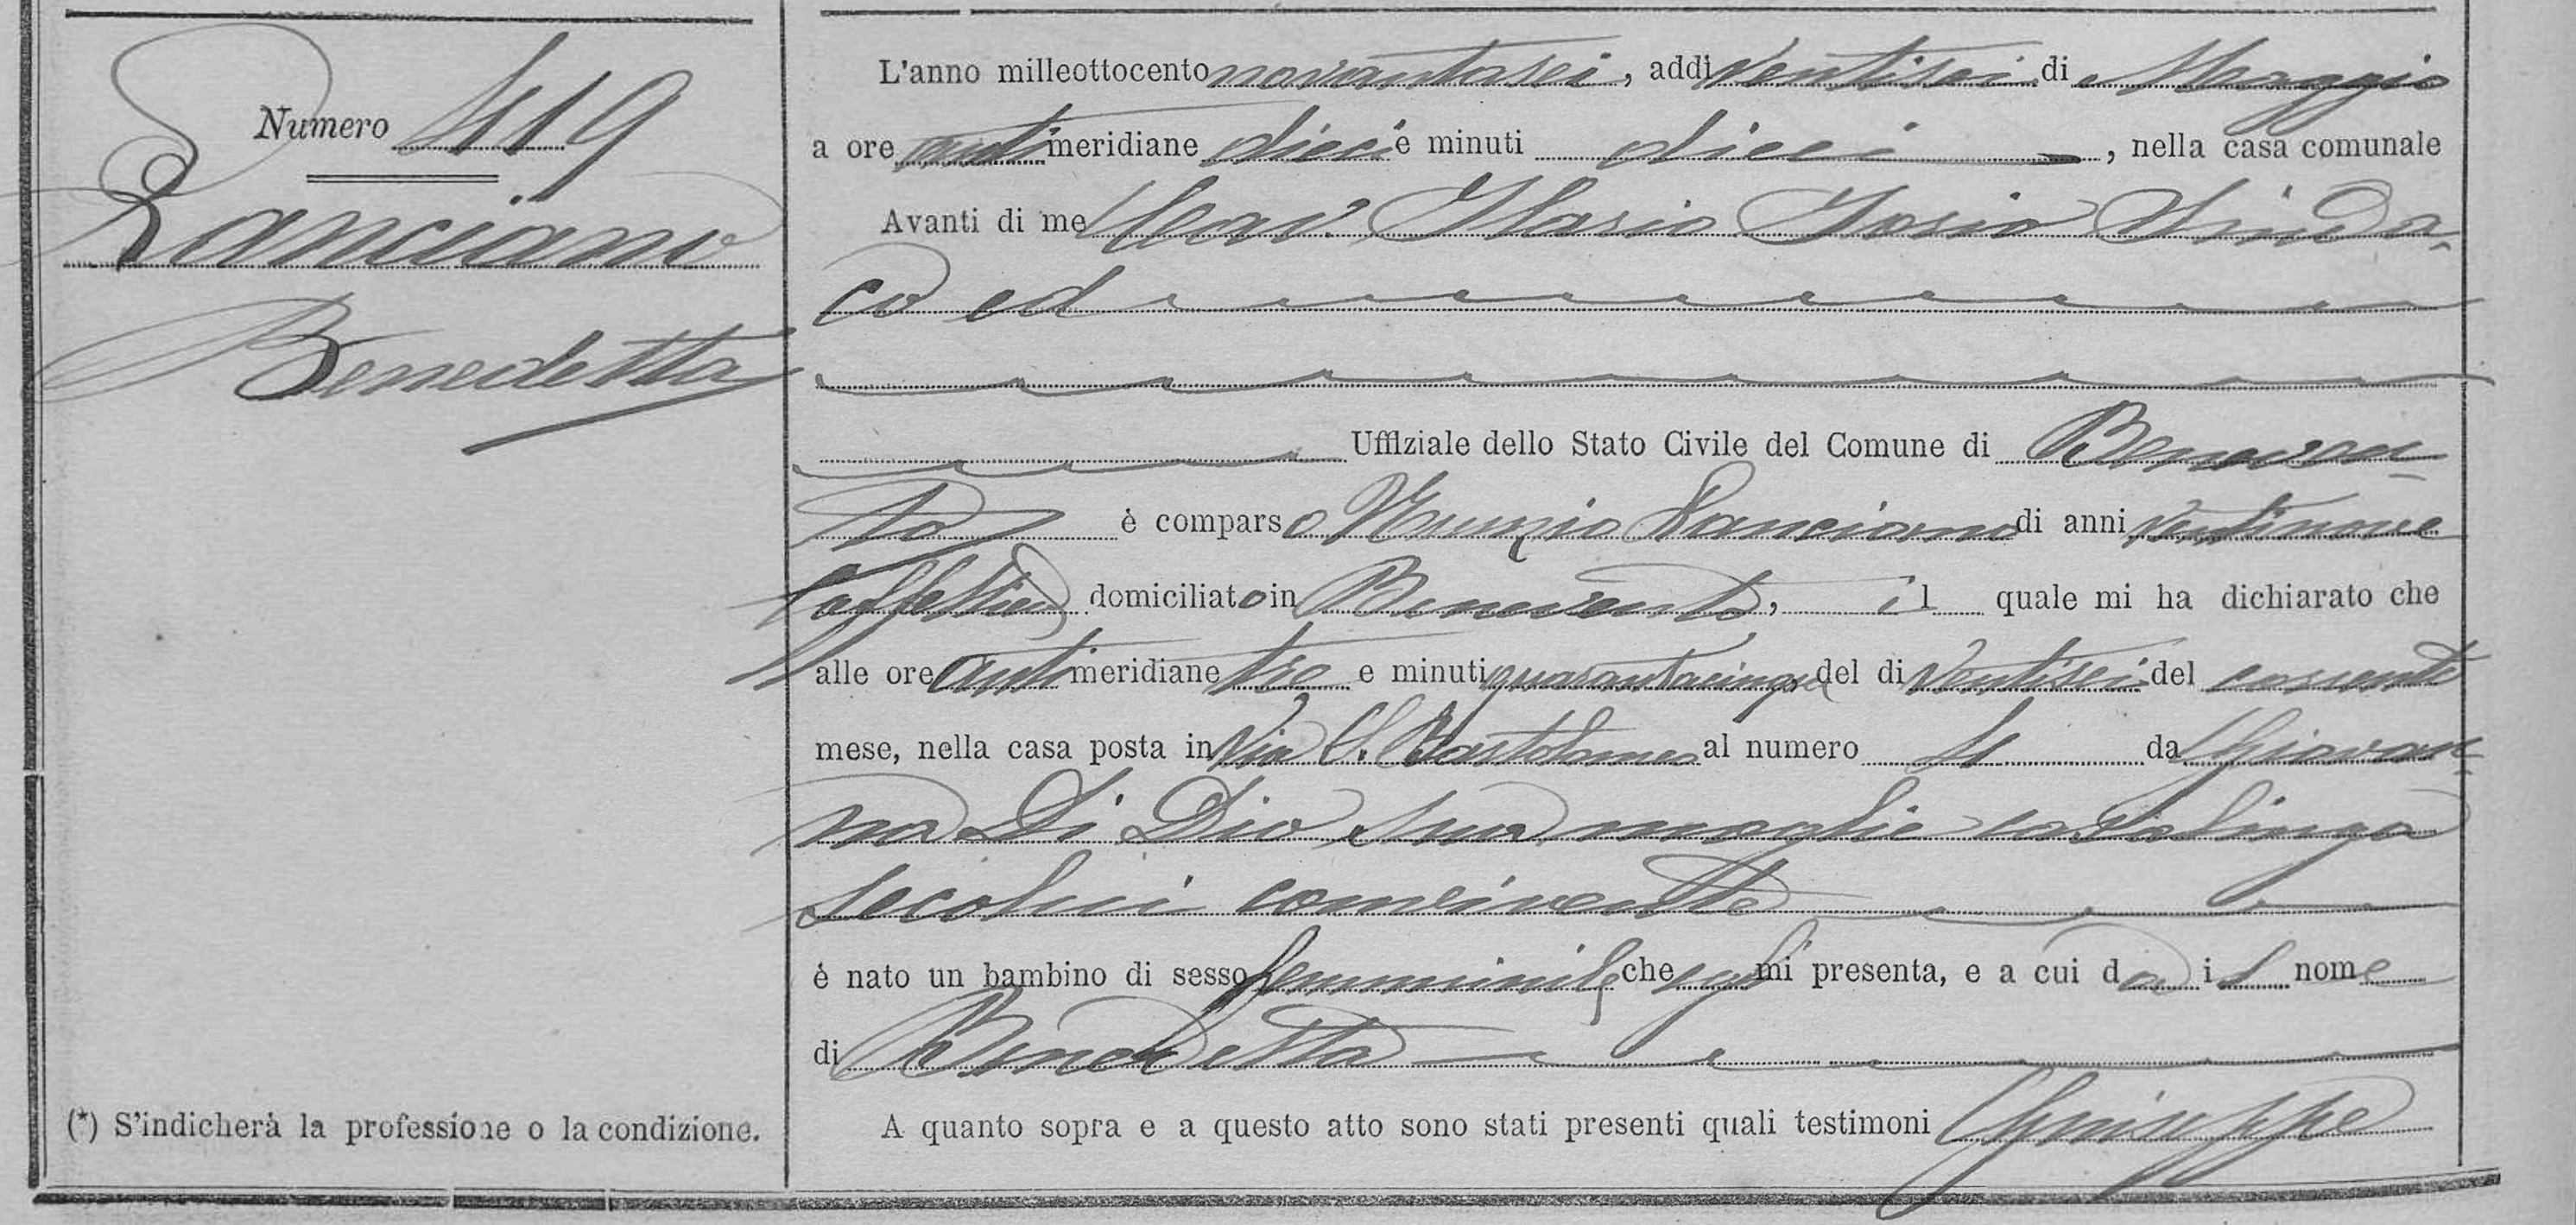 Numero 419
Lanciano
Benedetta
(*) S'indicherà la professione o la condizione.
L'anno milleottocento novantasei, addì ventisei di Maggio
a ore anti meridiane dieci e minuti dieci, nella casa comunale
Avanti di me Cav. Ilario Iosio Sinda-
co ed
Uffiziale dello Stato Civile del Comune di Beneven-
to è comparso Nunzio Lanciano di anni ventinove
Caffettiere domiciliato in Benevento, il quale mi ha dichiarato che
alle ore anti meridiane tre e minuti quarantacinque del dì ventisei del corrente
mese, nella casa posta in Via S. Bartolomeo al numero da Giovan-
na Di Dio sua moglie casalinga
secolui convivente
è nato un bambino di sesso femminile che mi presenta, e a cui dà il nome
di Benedetta
A quanto sopra e a questo atto sono stati presenti quali testimoni Giuseppe